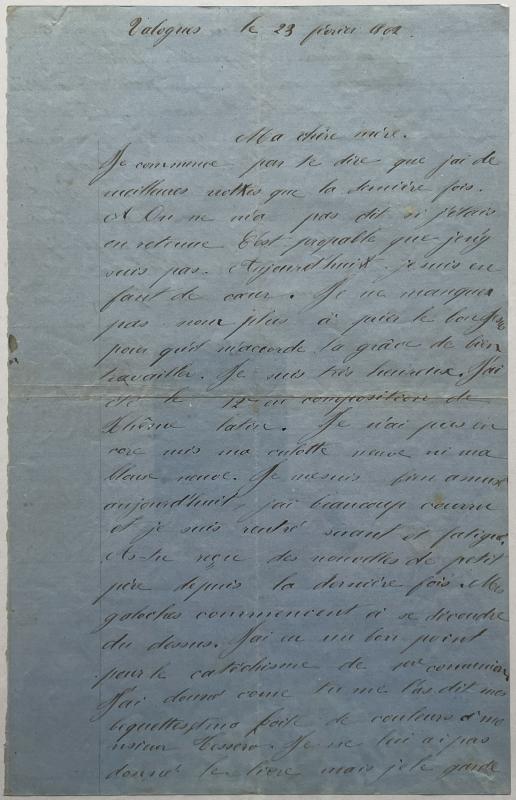 Valognes le 23 février 1902.
Ma chère mère.
Je commence par te dire que j'ai de
meilleures nottes que la dernière fois.
On ne m'a pas dit si j'étais
en retenue C'est propable que je n'y
suis pas. Aujourd'huit je suis en
fant de cœur. Je ne manques
pas nonr plus à prier le bon Jésus
pour qu'il m'accorde la grâce de bien
travailler. Je suis très heureux. J'ai
été le 12e en composition de
thême latin. Je n'ai pas en
core mis ma culotte neuve ni ma
blouse neuve. Je me suis bien amusé
aujourd'huit, j'ai beaucoup courru
et je suis rentré suant et fatigué.
As-tu reçu des nouvelles de petit
père depuis la dernière fois. Mes
galoches commencent à se découdre
du dessus. J'ai eu un bon point
pour le catéchisme de 1ère communion
J'ai donné come tu me l'as dit mes
et ma boite de couleurs à mo
nsieur Tissero. Je ne lui ai pas
donné le livre mais je le garde